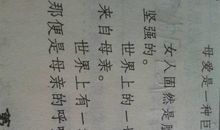 母爱是一种巨
女人固然是
坚强的。
世界上的一
来自母亲。
世界上有一
那便是母亲的呼